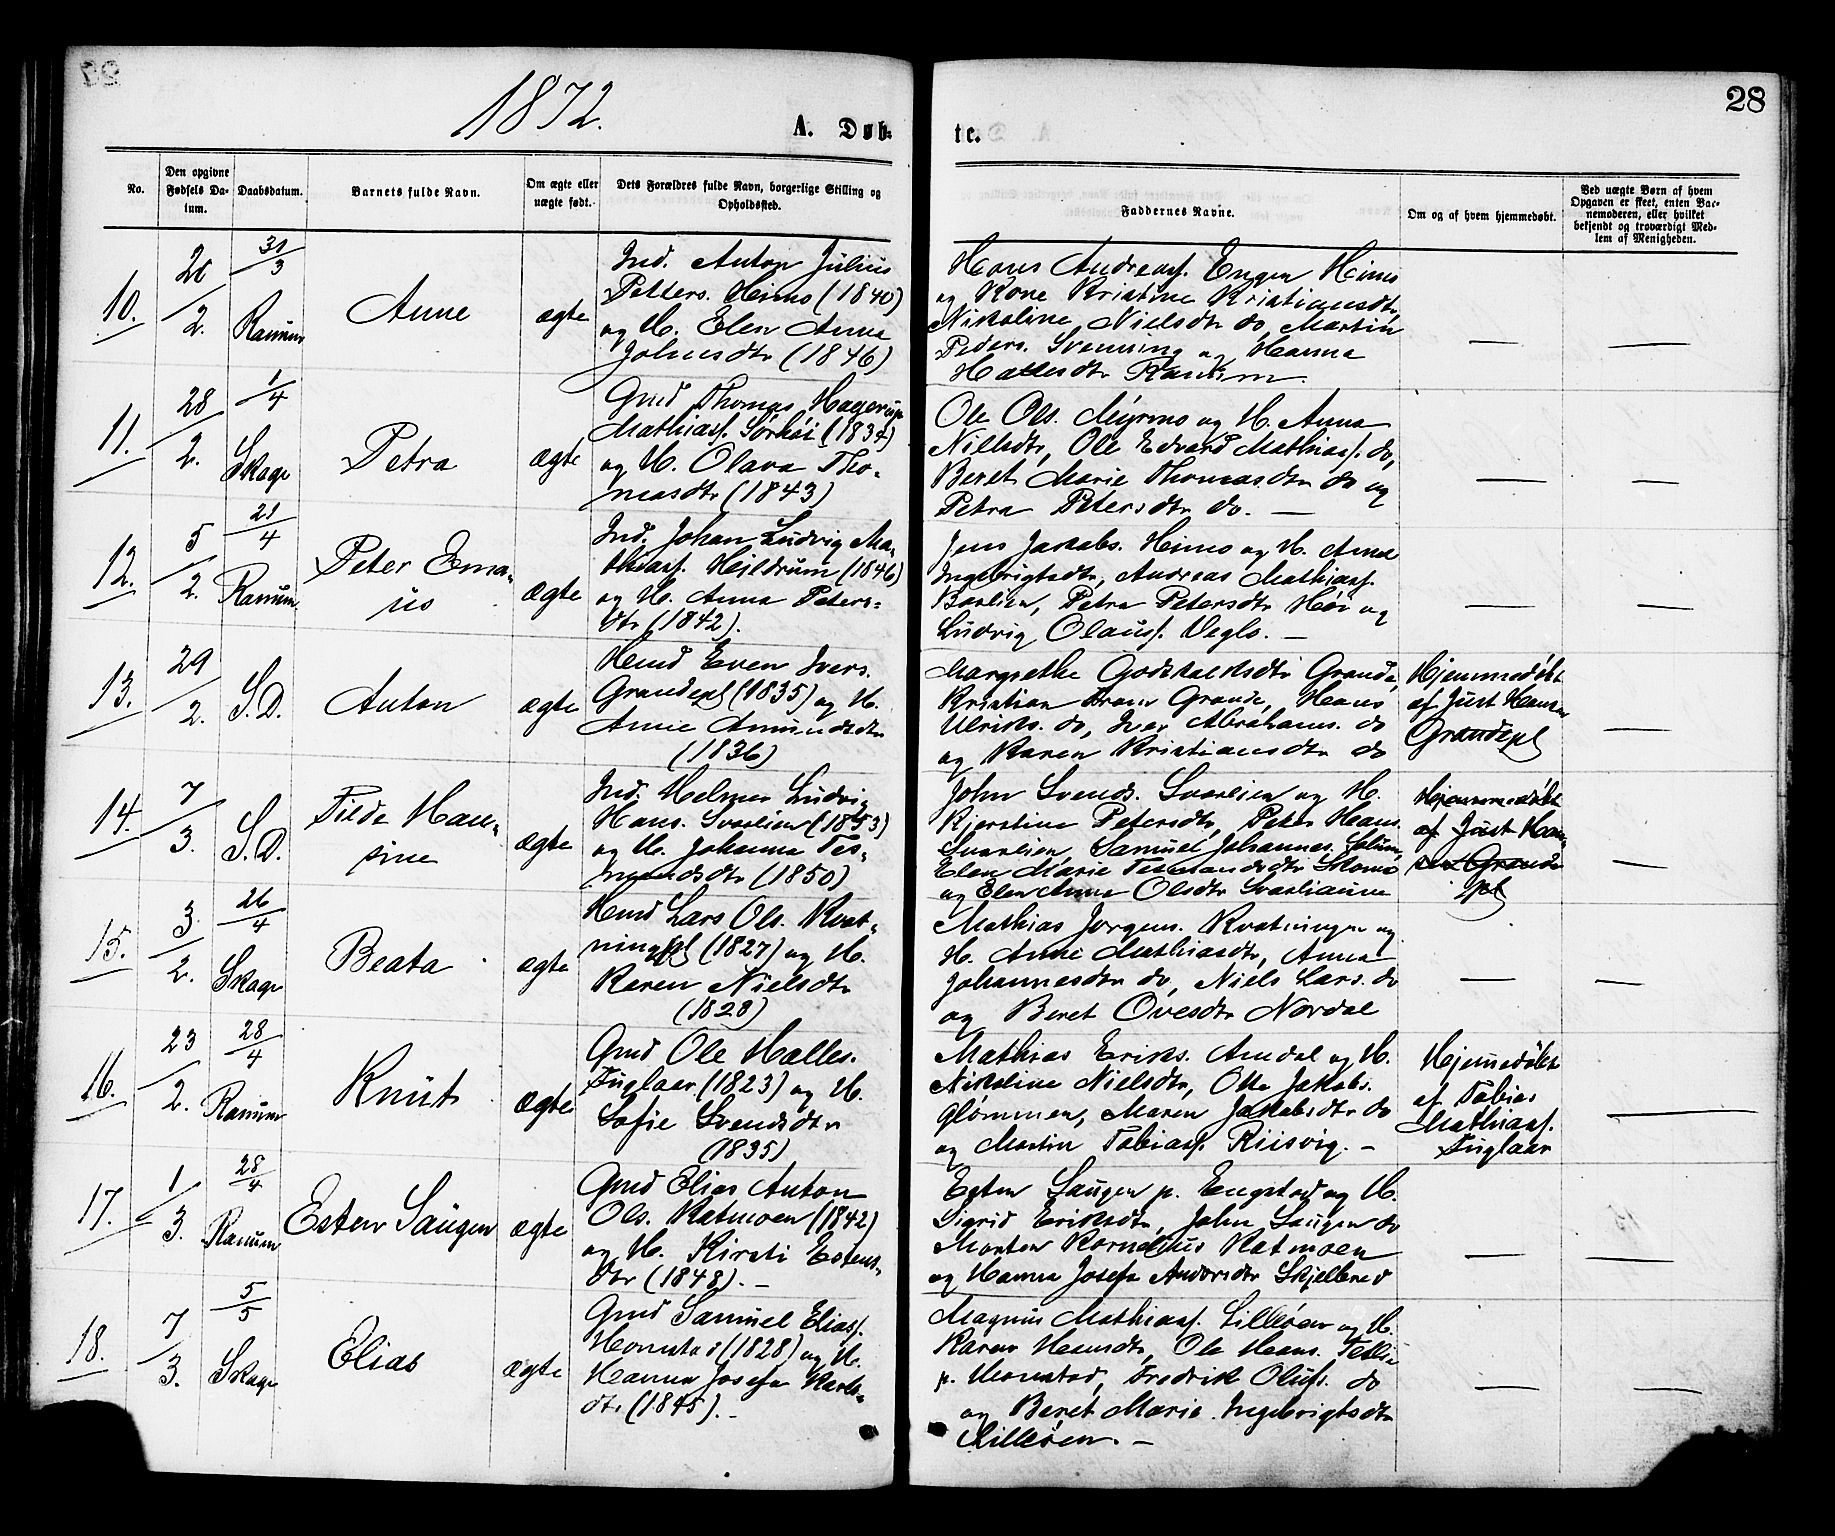 28
1872.
A. Døb-
te.
No.
Den opgivne
Fødsels Da-
tum.
Daabsdatum.
Barnets fulde Navn.
Om ægte eller
uægte født.
Dets Forældres fulde Navn, borgerlige Stilling og
Opholdssted.
Faddernes Navne.
Om og af hvem hjemmedøbt.
Ved uægte Børn af hvem
Opgaven er skeet, enten Bar-
nemoderen, eller hvilket
bekjendt og troværdigt Med-
lem af Menigheden.
10.
20/2.
31/3
Ranum
Anne
ægte
Ind. Anton Julius
Petters. Heimo (1840)
og H. Elen Anna
Johnsdtr (1846)
Hans Andreass. Engen Heimo
og Kone Kristine Kristiansdtr,
Nikoline Nielsdtr do, Martin
Peders. Svenning og Hanna
Hallesdtr Ranum.
—
—
11.
28/2.
1/4
Skage
Petra
ægte
Gmd Thomas Hagerup
Mathiass. Sørhøi (1834)
og H. Olava Tho-
masdtr (1843)
Ole Ols. Myrmo og H. Anna
Nielsdtr, Ole Edvard Mathiass. do,
Beret Marie Thomasdtr do og
Petra Petersdtr do. —
—
—
12.
5/2.
21/4
Ranum
Peter Ema-
us
ægte
Ind. Johan Ludvig Ma-
thiass. Heildrum (1846)
og H. Anna Peters-
dtr (1842).
Jens Jakobs. Heimo og H. Anne
Ingebrigtsdtr, Andreas Mathiass.
Barlien, Petra Petersdtr Høi og
Ludvig Olauss. Veglo. —
—
—
13.
29/2.
S.D.
Anton
ægte
Hmd Even Ivers.
Grandepl (1835) og H.
Anne Amundsdtr
(1836)
Margrethe Godskalksdtr Grande,
Kristian Grande, Hans
Ulriks. do, Iver Abrahams. do
og Karen Kristiansdtr do
Hjemmedøbt
af Just Hansen
Grandepl
—
14.
7/3.
S.D.
Tilda Han-
sine
ægte
Ind. Helmer Ludvig
Hans. Svarlien (1853)
og H. Johanna Tes-
mandsdtr (1850)
John Svends. Svarlien og H.
Kjerstine Petersdtr, Peter Hans.
Svarlien, Samuel Johannes. Solum,
Elen Marie Tesmandsdtr Skomo
og Elen Anna Olsdtr Svarliaunn
Hjemmedøbt
af Just Han-
sen Grande
pl
—
15.
3/2.
26/4
Skage
Beata
ægte
Hmd Lars Ols. Kvat-
ningpl (1827) og H.
Karen Nielsdtr
(1828)
Mathias Jørgens. Kvatningen og
H. Anne Mathiasdtr, Anna
Johannesdtr do, Niels Lars. do
og Beret Ovesdtr Nordal
—
—
16.
23/2.
28/4
Ranum
Knut
ægte
Gmd Ole Halles.
Fuglaar (1823) og H.
Sofie Svendsdtr
(1835)
Mathias Eriks. Amdal og H.
Nikoline Nielsdtr, Otto Jakobs.
Glømmen, Maren Jakobsdtr do
og Martin Tobiass. Riisvig. —
Hjemmedøbt
af Tobias
Mathiass.
Fuglaar
—
17.
1/3.
28/4
Ranum
Esten Saugen
ægte
Gmd Elias Anton
Ols. Katmoen (1842)
og H. Kirsti Estens-
dtr (1848). —
Esten Saugen p. Engstad og H.
Sigrid Eriksdtr, John Saugen do
Morten Kornelius Katmoen
og Hanna Josefa Andersdtr Skjelbred
—
—
18.
7/3.
5/5
Skage
Elias
ægte
Gmd Samuel Eliass.
Homstad (1828) og H.
Hanna Josefa Karls-
dtr (1845). —
Magnus Mathiass. Lilleøen og H.
Karen Hansdtr, Ole Hans.
p. Homstad, Fredrik Olufs. do
og Beret Marie Ingebrigtsdtr
Lilleøen. —
—
—